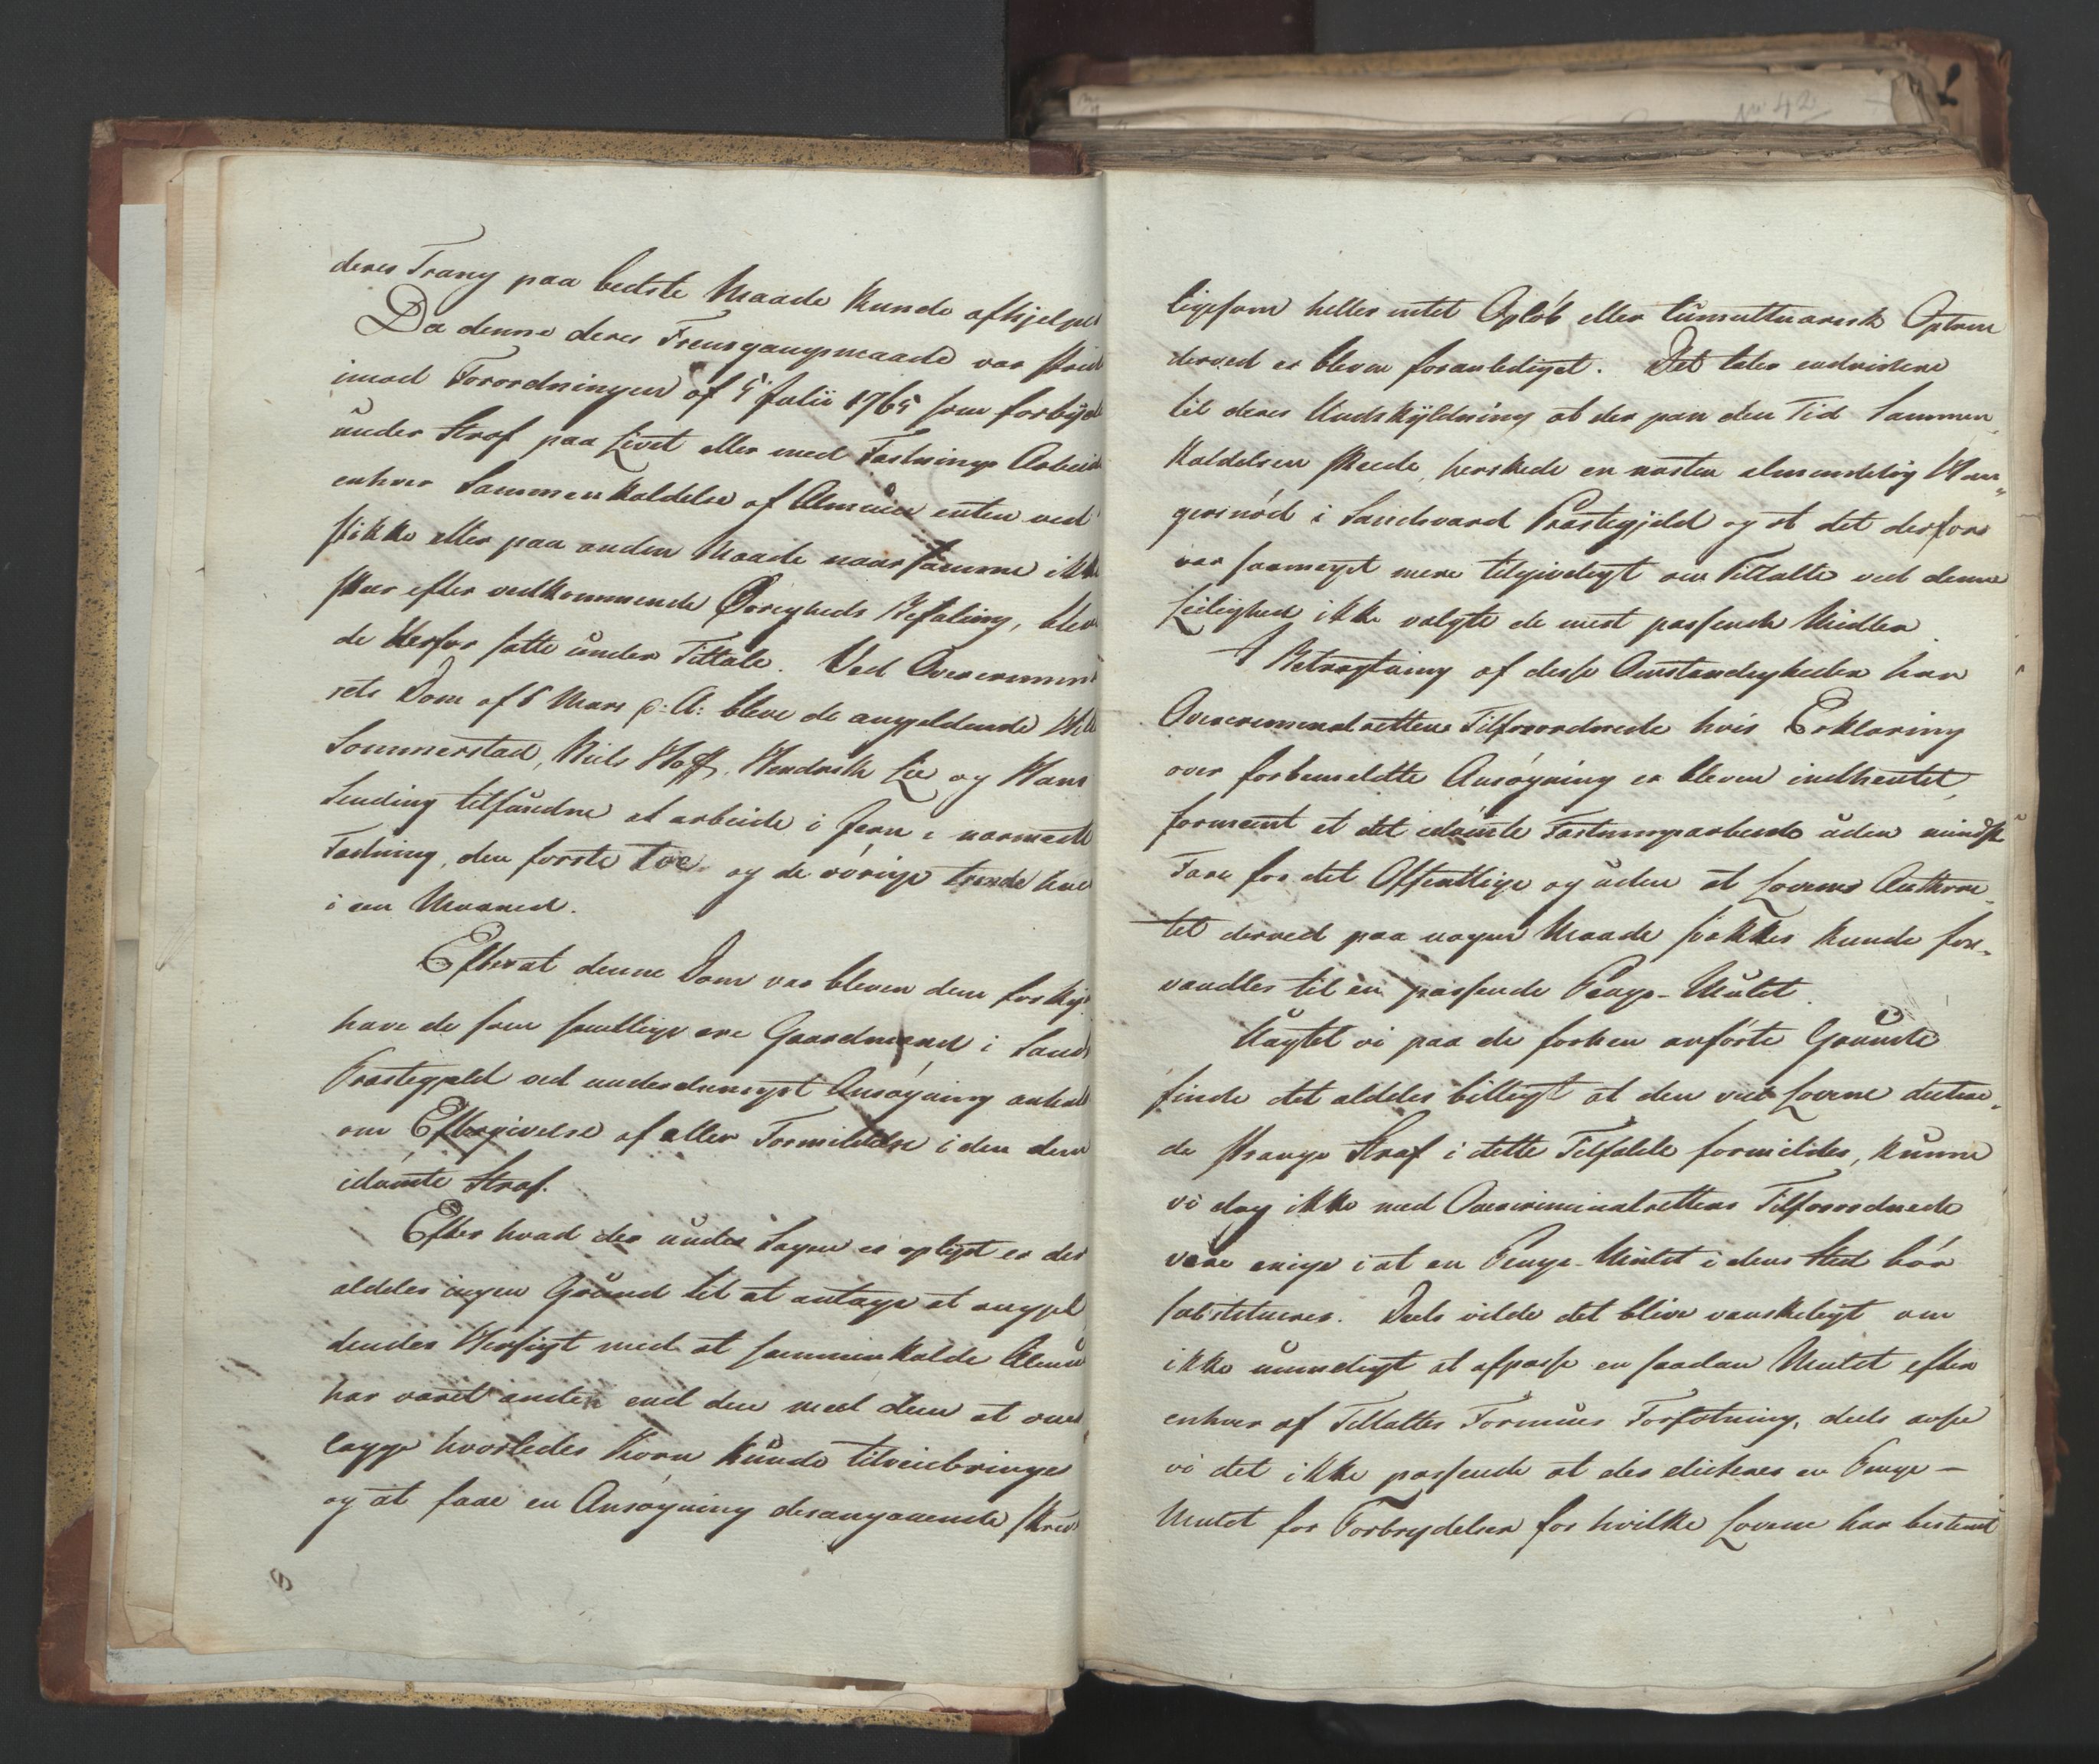 deres Trang paa bedste Maade kunde afhjelpes
Da denne deres Fremgangsmaade var strid
imod Forordningen af 5 Julii 1765 som forbyde
under Straf paa Livet eller med Fæstnings Arbeide
enhver Sammenkaldelse af Almuen enten ved
stikke eller paa anden Maade naar samme ikke
skeer efter vedkommende Øvrigheds Befaling, bleve
de derfor satte under Tiltale. Ved Overcriminal
rets Dom af 6 Mars d: A: bleve de angjeldende
Sommerstad, Niels Hoff, Hendrik Lie og Hans
Sending tilfundne at arbeide i Jern i nærmeste
Fæstning, den første toe og de øvrige trende hver
i een Maaned.
Efterat denne Dom var bleven dem forkyndt
have de som samtlige ere Gaardmænd i Sand
Præstegjeld ved underdanigst Ansøgning anholdt
om Eftergivelse af eller Formildelse i den dem
idømte Straf.
Efter hvad der under Sagen er oplyst er der
aldeles ingen Grund til at antage at angjel
dendes Hensigt med at sammenkalde Almuen
har været anden end den med dem at over
lægge hvorledes Korn kunde tilveiebringes
og at faae en Ansøgning desangaaende skrevet
ligesom heller intet Opløb eller tumultuarisk Optrin
derved er bleven foranlediget. Det taler endvidere
til deres Undskyldning at der paa den Tid Sammen
kaldelsen skeede, herskede en næsten almindelig Hun
gersnød i Sandsværd Præstegjeld og at det derfor
var saameget mere tilgiveligt om Tiltalte ved denne
Leilighed ikke valgte de mest passende Midler.
I Betragtning af disse Omstændigheder har
Overcriminalrettens Tilforordnede hvis Erklæring
over forbemeldte Ansøgning er bleven indhentet,
formeent at det idømte Fæstningsarbeide uden mindste
Fare for det Offentlige og uden at Lovens Authori
tet derved paa nogen Maade svækkes kunde for-
vandles til en passende Penge-Mulct.
Uagtet vi paa de forhen anførte Grunde
finde det aldeles billigt at den ved Lovene dictere
de strænge Straf i dette Tilfælde formildes, kunne
vi dog ikke med Overcriminalrettens Tilforordnede
være enige i at en Penge-Mulct i dens Sted bør
substitueres. Deels vilde det blive vanskeligt om
ikke umueligt at afpasse en saadan Mulct efter
enhver af Tiltaltes Formues Forfatning, deels ansee
vi det ikke passende at der dicteres en Penge-
Mulct for Forbrydelser for hvilke Lovene har bestemt